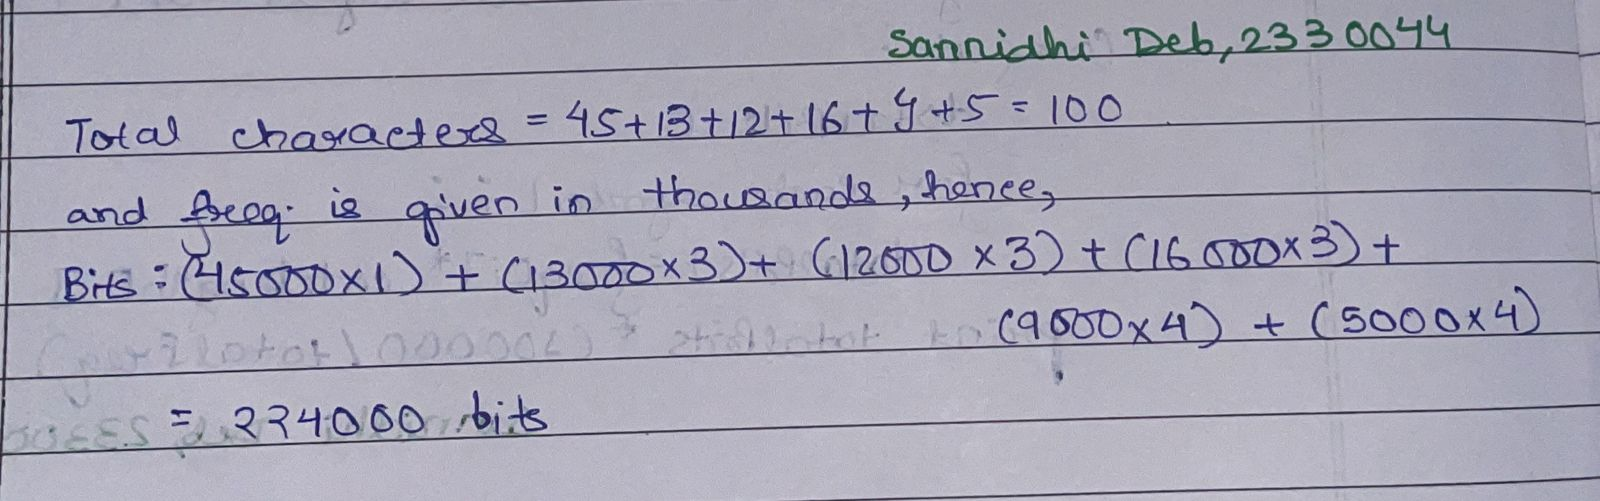 Sannidhi Deb, 2330044
Total characters = 45+13+12+16+9+5 = 100
and freq. is given in thousands, hence,
Bits = (45000×1) + (13000×3) + (12000 ×3) + (16000×3) +
(9000×4) + (5000×4)
= 224000 bits